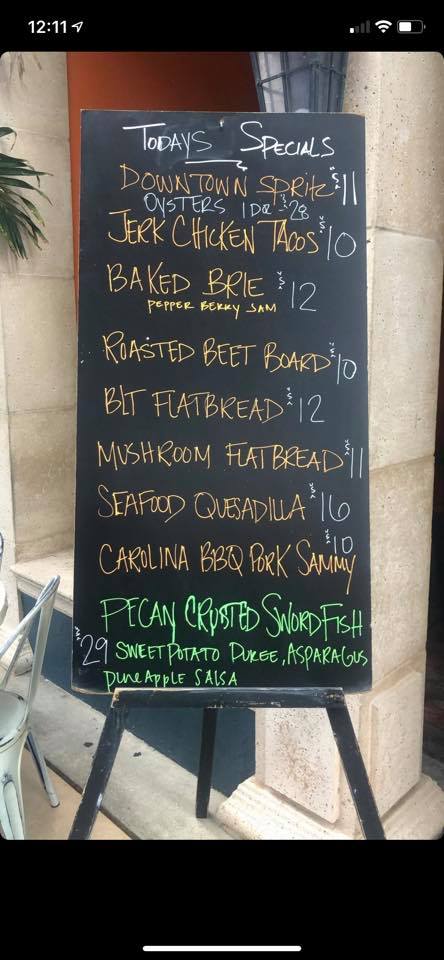 12:11
TODAYS SPECIALS
DOWNTOWN SPRITZ $11
OYSTERS 1 DZ - $28
JERK CHICKEN TACOS $10
BAKED BRIE $12
PEPPER BERRY JAM
ROASTED BEET BOARD $10
BLT FLATBREAD $12
MUSHROOM FLATBREAD $11
SEAFOOD QUESADILLA $16
$10
CAROLINA BBQ PORK SAMMY
PECAN CRUSTED SWORDFISH
$29 SWEET POTATO PUREE, ASPARAGUS
PINEAPPLE SALSA